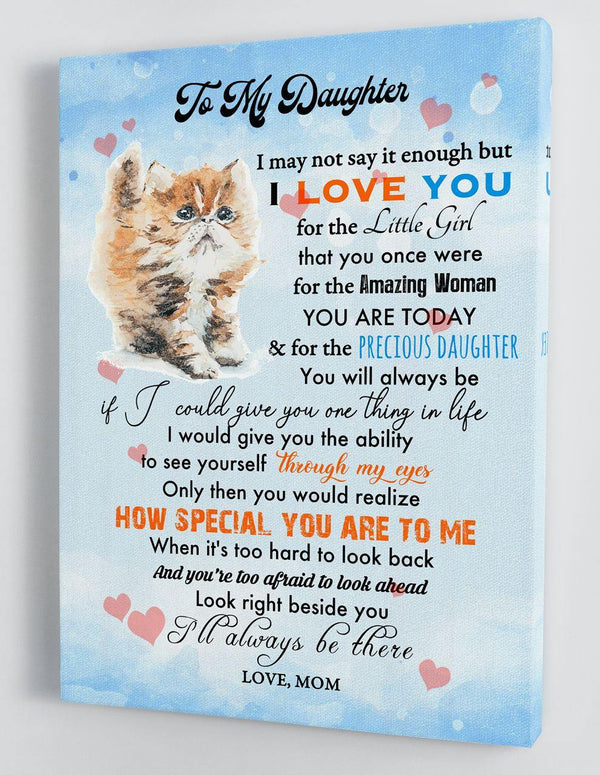 To My Daughter
I may not say it enough but
I LOVE YOU
for the Little Girl
that you once were
for the Amazing Woman
YOU ARE TODAY
& for the PRECIOUS DAUGHTER
You will always be
if I could give you one thing in life
I would give you the ability
to see yourself through my eyes
Only then you would realize
HOW SPECIAL YOU ARE TO ME
When it's too hard to look back
And you're too afraid to look ahead
Look right beside you
I'll always be there
LOVE, MOM